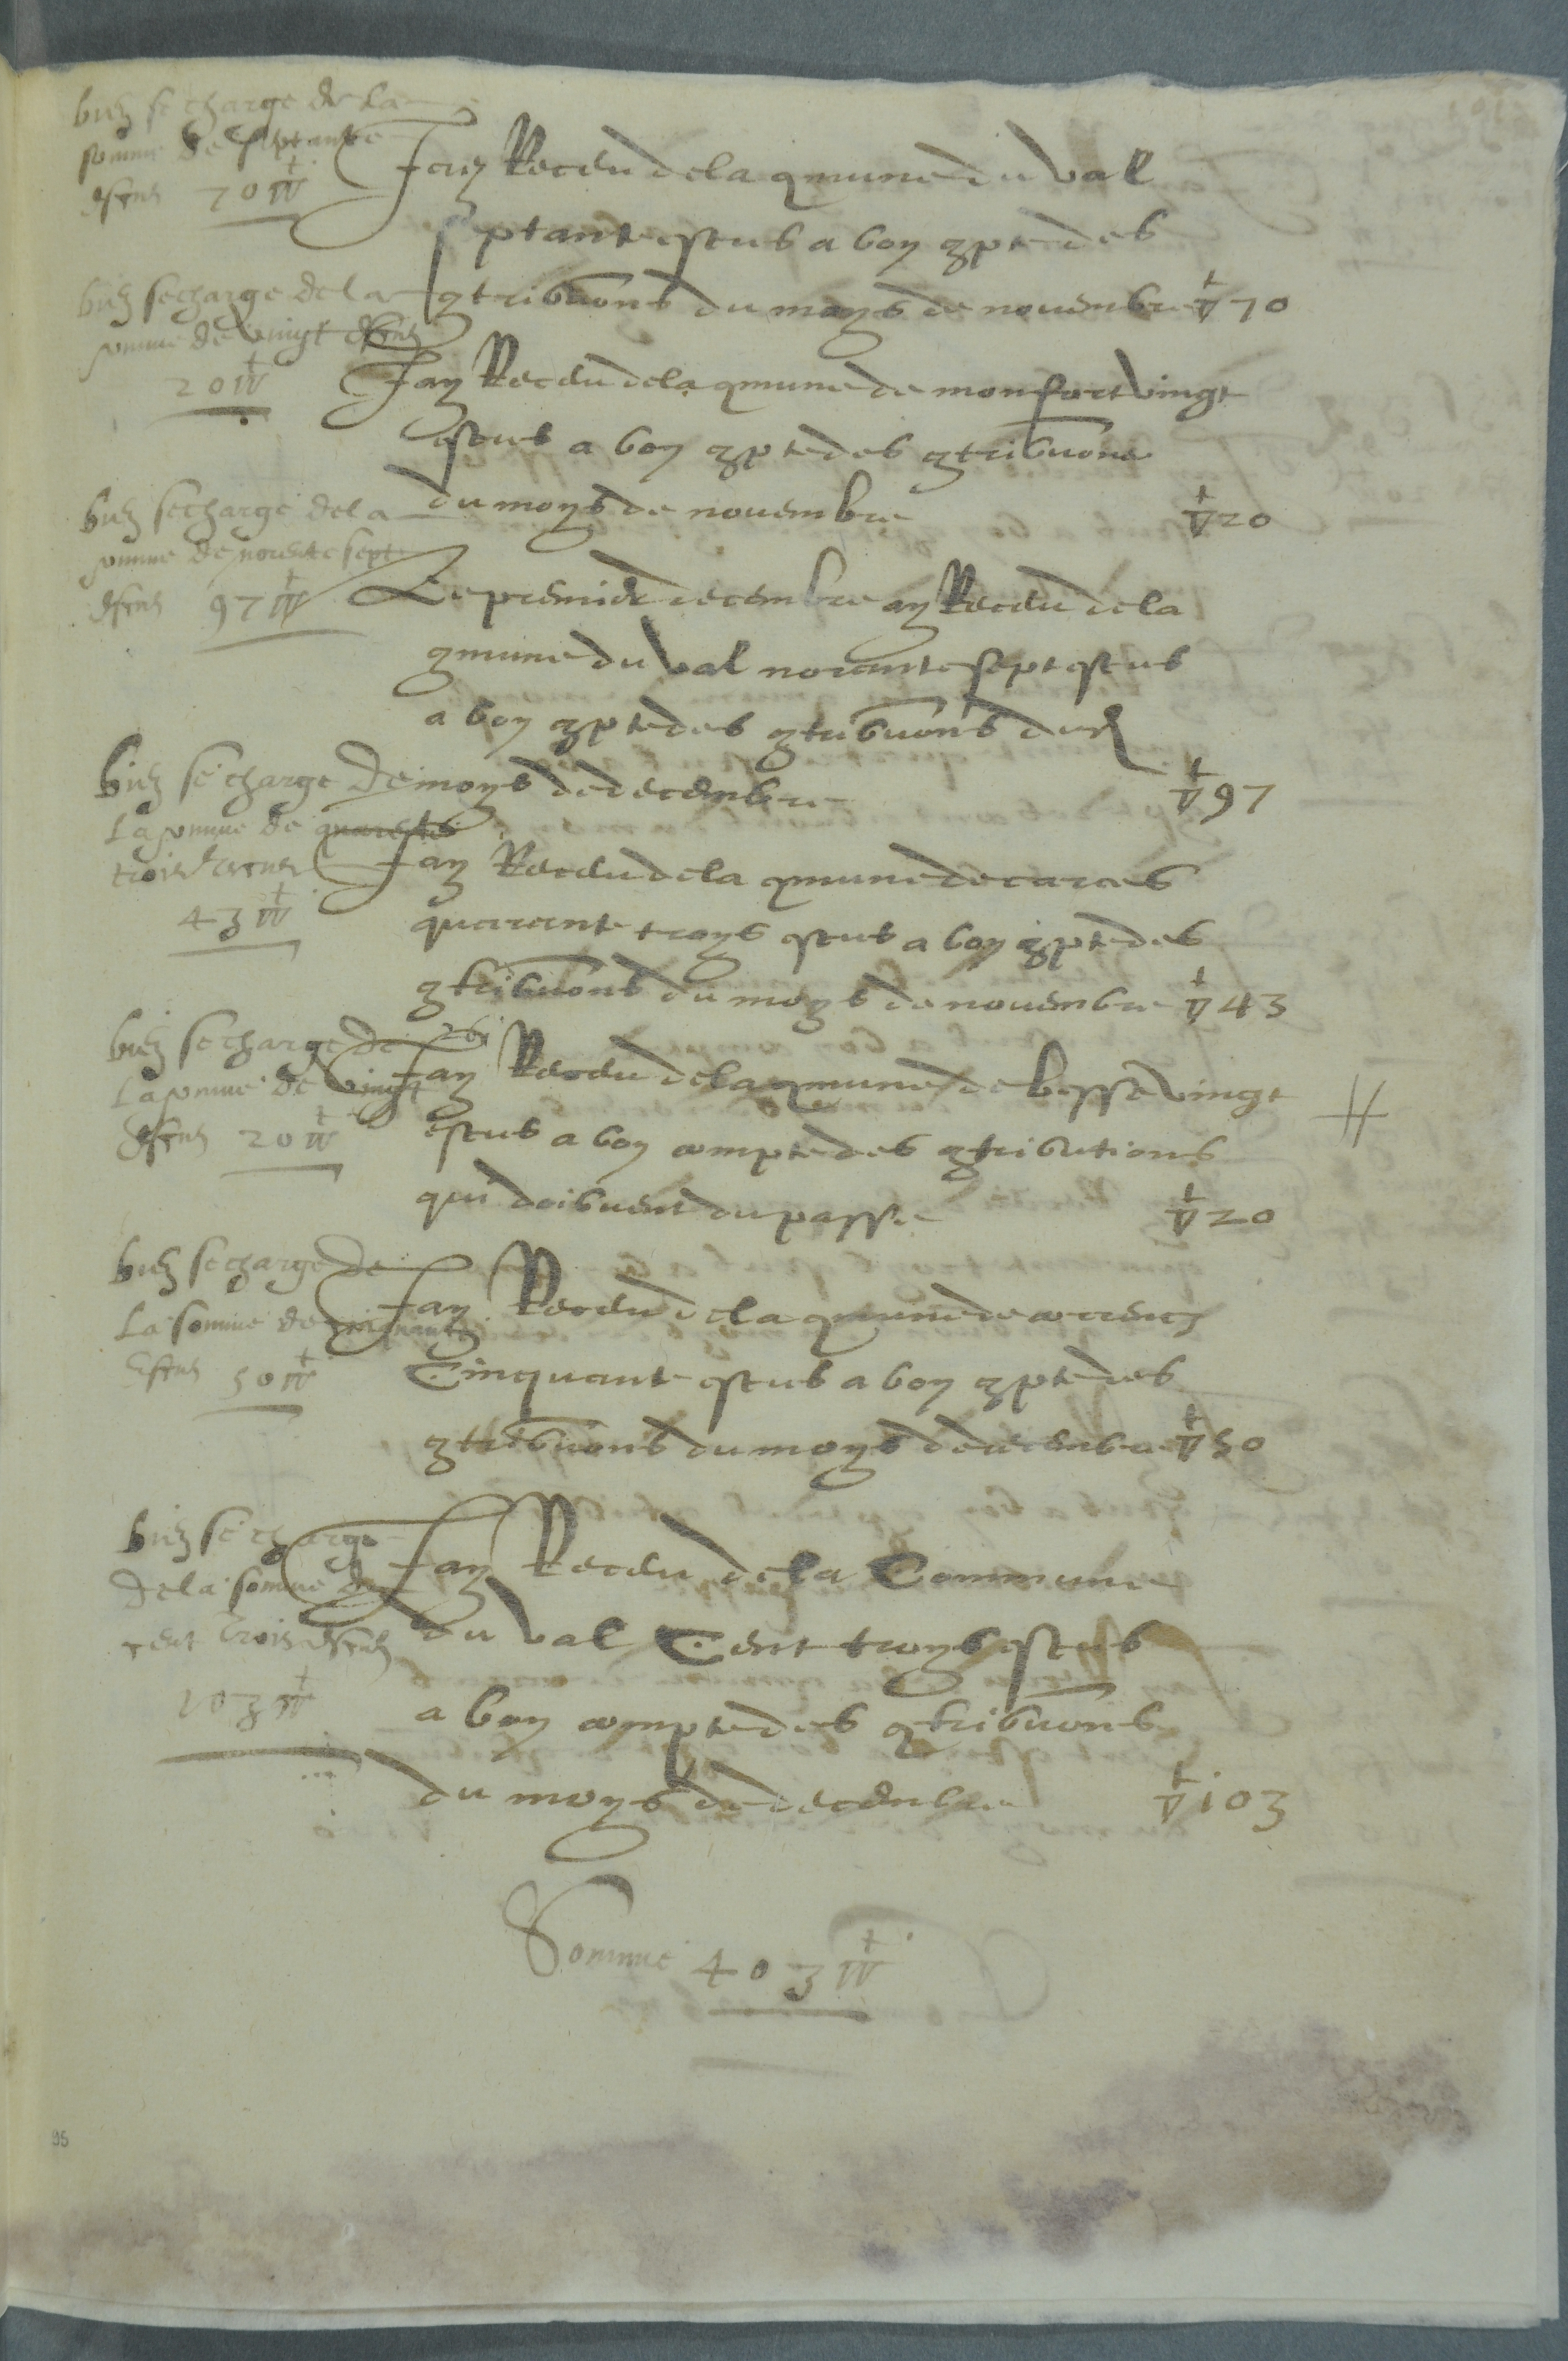 bien se charge de la
somme de septante
escus 70 ▽
Jay Receu de la cmune du val
septante escus a bon cpte des
ctribuons du moys de novembre ▽ 70
bien se charge de la
somme de vingt escus
20 ▽
Jay Receu de la cmune de monfort vingt
escus a bon cpte des ctribuons
du moys de novembre ▽ 20
bien se charge de la
somme de novente sept
escus 97 ▽
Le premier decembre ay Receu de la
cmune du val novante sept escus
a bon cpte des ctribuons du
moys de decembre ▽ 97
bien se charge de
la somme de quarente
trois escus
43 ▽
Jay Receu de la cmune de carces
quarante troys escus a bon cpte des
ctribuons du moys de novembre ▽ 43
bien se charge de
la somme de vingt
escus 20 ▽
Jay Receu de la cmune de besse vingt
escus a bon compte des ctributions
qui doibuent du passe ▽ 20
bien se charge de
la somme de cinquante
escus 50 ▽
Jay Receu de la cmune de correns
Cinquante escus a bon cpte des
ctribuons du moys de decembre ▽ 50
bien se charge
de la somme de
cent trois escus
103 ▽
Jay Receu de la Commune
du val Cent troys escus
a bon compte des ctribuons
du moys de decembre ▽ 103
Somme 403 ▽
95